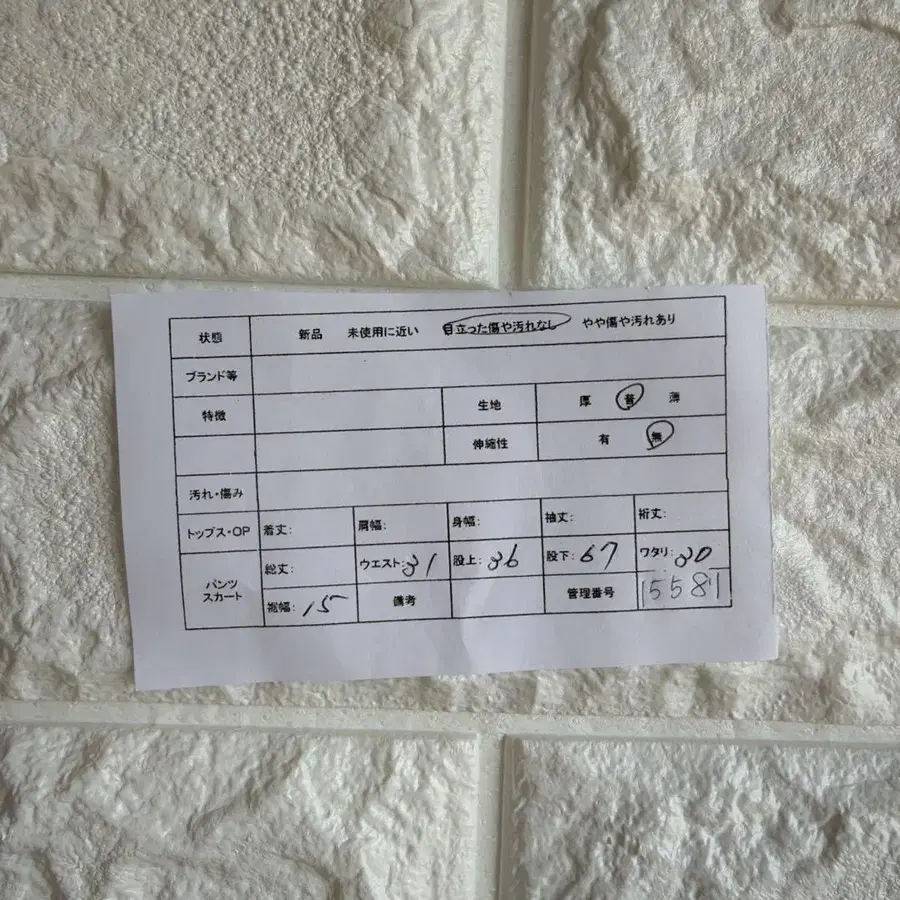 状態 新品 未使用に近い 目立った傷や汚れなし やや傷や汚れあり
ブランド等
特徴 生地 厚 普 薄
伸縮性 有 無
汚れ・傷み
トップス・OP 着丈: 肩幅: 身幅: 袖丈: 裄丈:
パンツ スカート 総丈: ウエスト:31 股上:36 股下:67 ワタリ:30
裾幅:15 備考 管理番号 15587